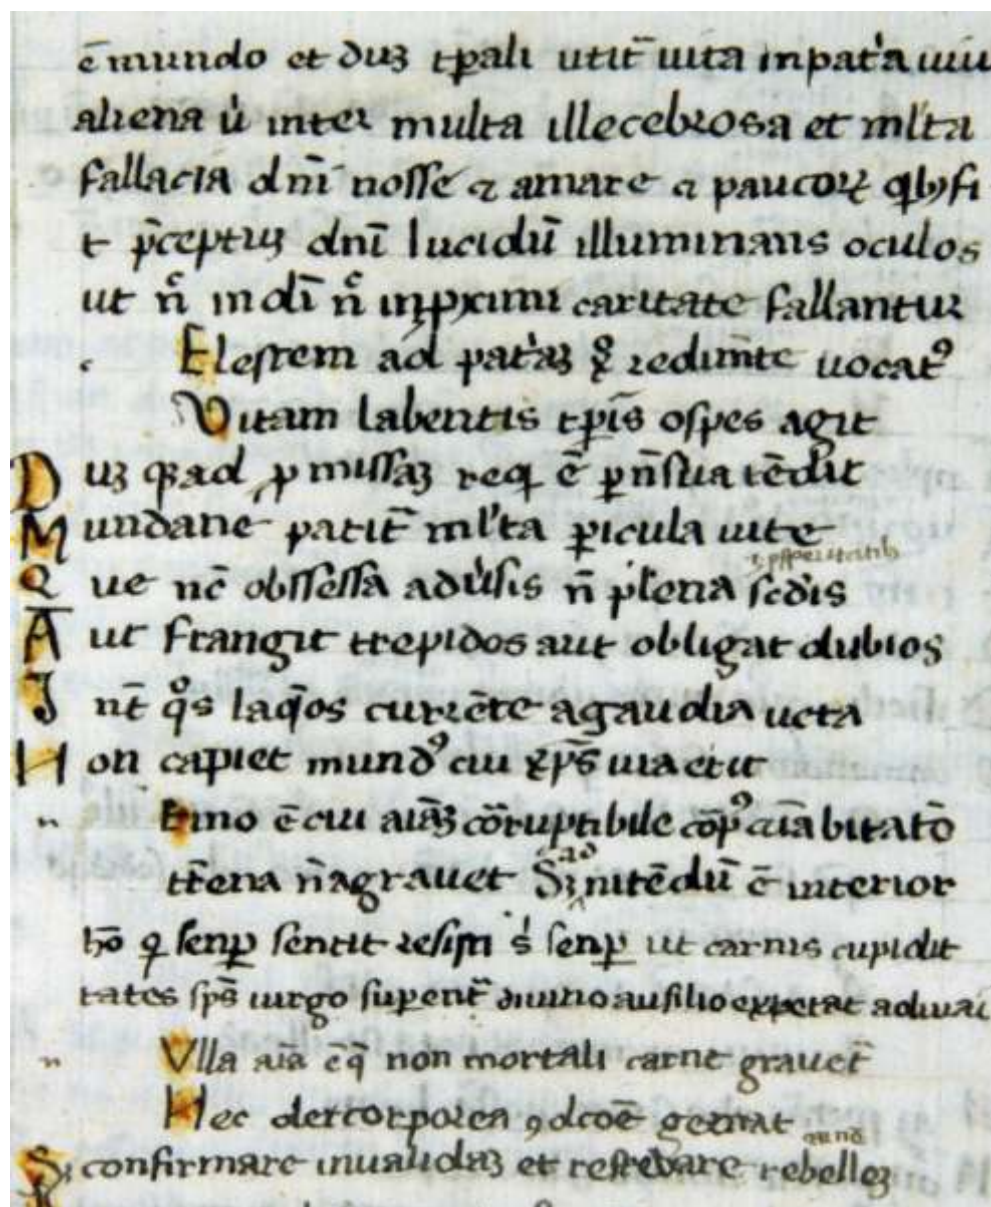 ē mundo et duꝫ tꝑali utit᷑ uita in pat'a uiu
aliena u̓ inter multa illecebrosa et ml̓ta
fallacia dn̄i nosse ⁊ amare ⁊ paucoꝝ qͥbꝫ si
t p̄ceptuꝫ dn̄i lucidū illuminans oculos
ut n̄ in dī n̄ in ꝓximi caritate fallantur
Elestem ad pat'aꝫ redimēte uocatꝰ
Vitam labentis tꝑis ospes agit
D uꝫ ad ꝓmissaꝫ req̄ ē ꝑ n̄ sua tēdit
M undane patit᷑ ml̓ta ꝑicula uite
ꝓsperitatibꝫ
Q ue nc̄ obssessa adu̓sis n̄ plena scd̓is
A ut frangit trepidos aut obligat dubios
I nt̄ qͦs laq̄os currēte a gaudia uecta
N on capiet mundꝰ cui xp̄s uia erit
Emo ē cui aiāꝫ cōruptibile corpꝰ abitatō
tr̄ena n̄ agrauet Sꝫ nitēdū ē interior
ad
hō qͥ senꝑ sentit resisti s̓ senꝑ ut carnis cupidit
tates sp̄s uirgo suꝑent᷑ diuino ausilio expetat adiuuai
Vlla aīa ē q̄ non mortali carne grauet᷑
Hec det corporea ꝯdicōe gemat
Sꝫ confirmare inualidaꝫ et refrenare rebelleꝫ